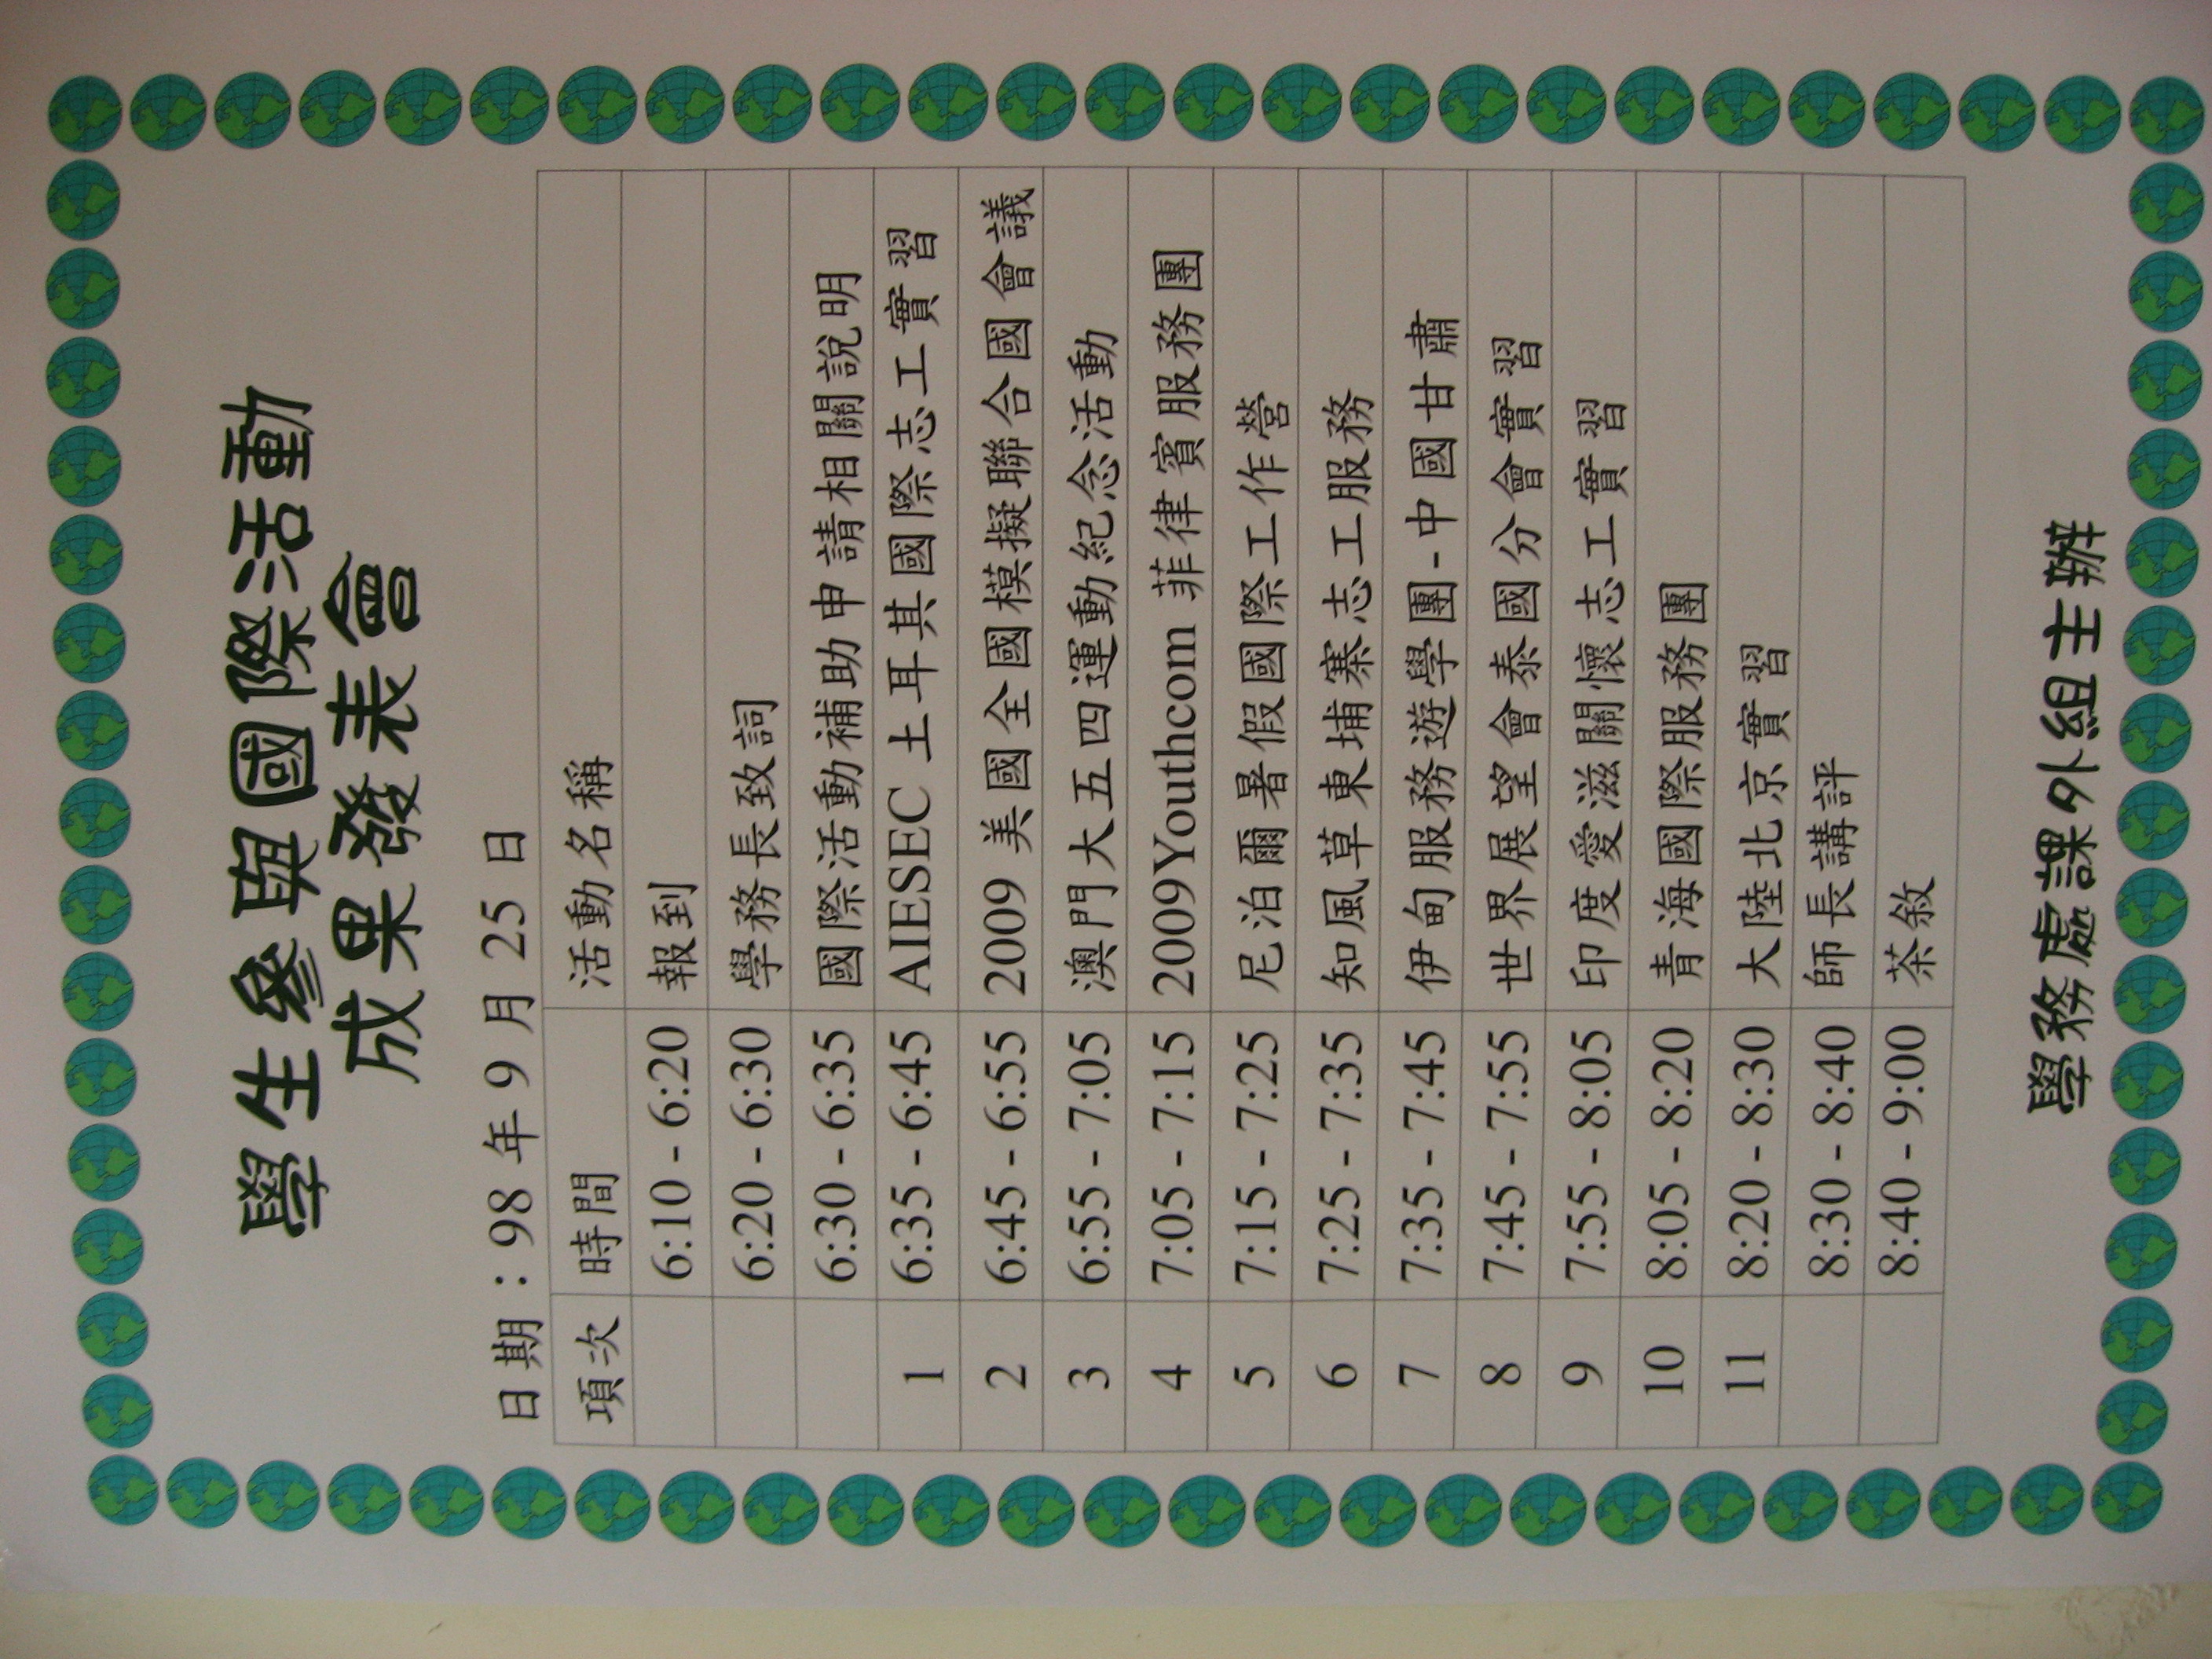 學生參與國際活動
成果發表會
日期：98 年 9 月 25 日
項次 時間 活動名稱
6:10 - 6:20 報到
6:20 - 6:30 學務長致詞
6:30 - 6:35 國際活動補助申請相關說明
1 6:35 - 6:45 AIESEC 土耳其國際志工實習
2 6:45 - 6:55 2009 美國全國模擬聯合國會議
3 6:55 - 7:05 澳門大五四運動紀念活動
4 7:05 - 7:15 2009Youthcom 菲律賓服務團
5 7:15 - 7:25 尼泊爾暑假國際工作營
6 7:25 - 7:35 知風草東埔寨志工服務
7 7:35 - 7:45 伊甸服務遊學團-中國甘肅
8 7:45 - 7:55 世界展望會泰國分會實習
9 7:55 - 8:05 印度愛滋關懷志工實習
10 8:05 - 8:20 青海國際服務團
11 8:20 - 8:30 大陸北京實習
8:30 - 8:40 師長講評
8:40 - 9:00 茶敘
學務處課外組主辦